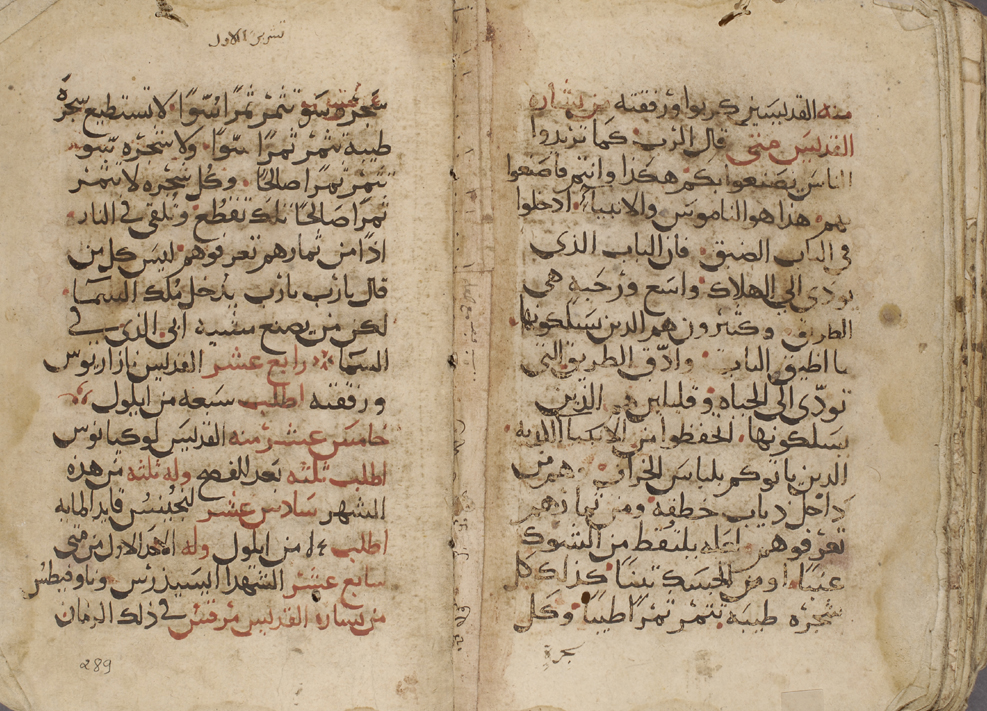 منه القديسين كربوا ورفقته من بشاره
القديس متى قال الرب كما تريدوا
الناس يصنعوا بكم هكذا وانتم فاصنعوا
بهم هذا هو الناموس والانبيا ادخلوا
في الباب الضيق فان الباب الذي
يودي الى الهلاك واسع ورحبه هي
الطريق وكثيرون هم الذين يسلكونها
ما اضيق الباب وادق الطريق التي
تودي الى الحياه وقليلين هم الذين
يسلكونها احفظوا من الانبيا الكذبه
الذين ياتوكم بلباس الخراف وهم من
داخل دياب خطفه ومن ثمارهم
تعرفوهم لعله يلتقط من الشوك
عنبا او من الحسك تينا كذلك كل
شجره طيبه تثمر ثمرا طيبا وكل
شجرة
تشرين الاول
شجره سو تثمر ثمرا سوا لا تستطيع شجره
طيبه تثمر ثمرا سوا ولا شجره سو
تثمر ثمرا صالحا وكل شجره لا تثمر
ثمرا صالحا تلك تقطع وتلقى في النار
اذا من ثمارهم تعرفوهم ليس كل من
قال يارب يارب يدخل ملك السما
لكن من يصنع مشية ابي الذي في
السما رابع عشر القديس نازاريوس
ورفقته اطلب سبعه من ايلول
خامس عشر منه القديس لوكيانوس
اطلب ثلثه بعد الفصح وله ثلثه من هذه
الشهر سادس عشر لنجينس قايد المايه
اطلب من ايلول وله الاحد الاول من متى
سابع عشر الشهدا
من بشاره القديس مرقس في ذلك الزمان
289